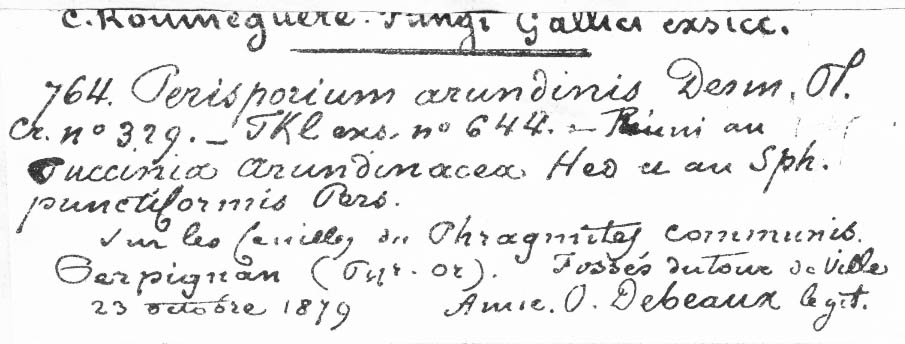 C. Roumeguère. Fungi Gallici exsicc.
764. Perisporium arundinis Desm. Pl.
Cr. nº 329. — FKl exs. nº 644. — Réuni au
Puccinia arundinacea Hed et au Sph.
punctiformis Pers.
Sur les feuilles du Phragmites communis.
Perpignan (Pyr. Or). Fossés du tour de Ville
23 octobre 1879 Amic. O. Debeaux legit.